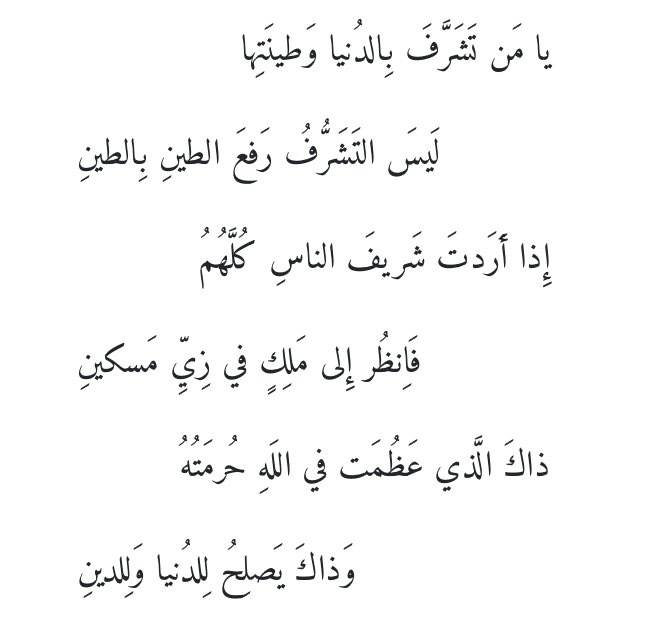 يا مَن تَشَرَّفَ بِالدُنيا وَطينَتِها
لَيسَ التَشَرُّفُ رَفعَ الطينِ بِالطينِ
إِذا أَرَدتَ شَريفَ الناسِ كُلَّهُمُ
فَاِنظُر إِلى مَلِكٍ في زِيِّ مَسكينِ
ذاكَ الَّذي عَظُمَت في اللَهِ حُرمَتُهُ
وَذاكَ يَصلِحُ لِلدُنيا وَلِلدينِ